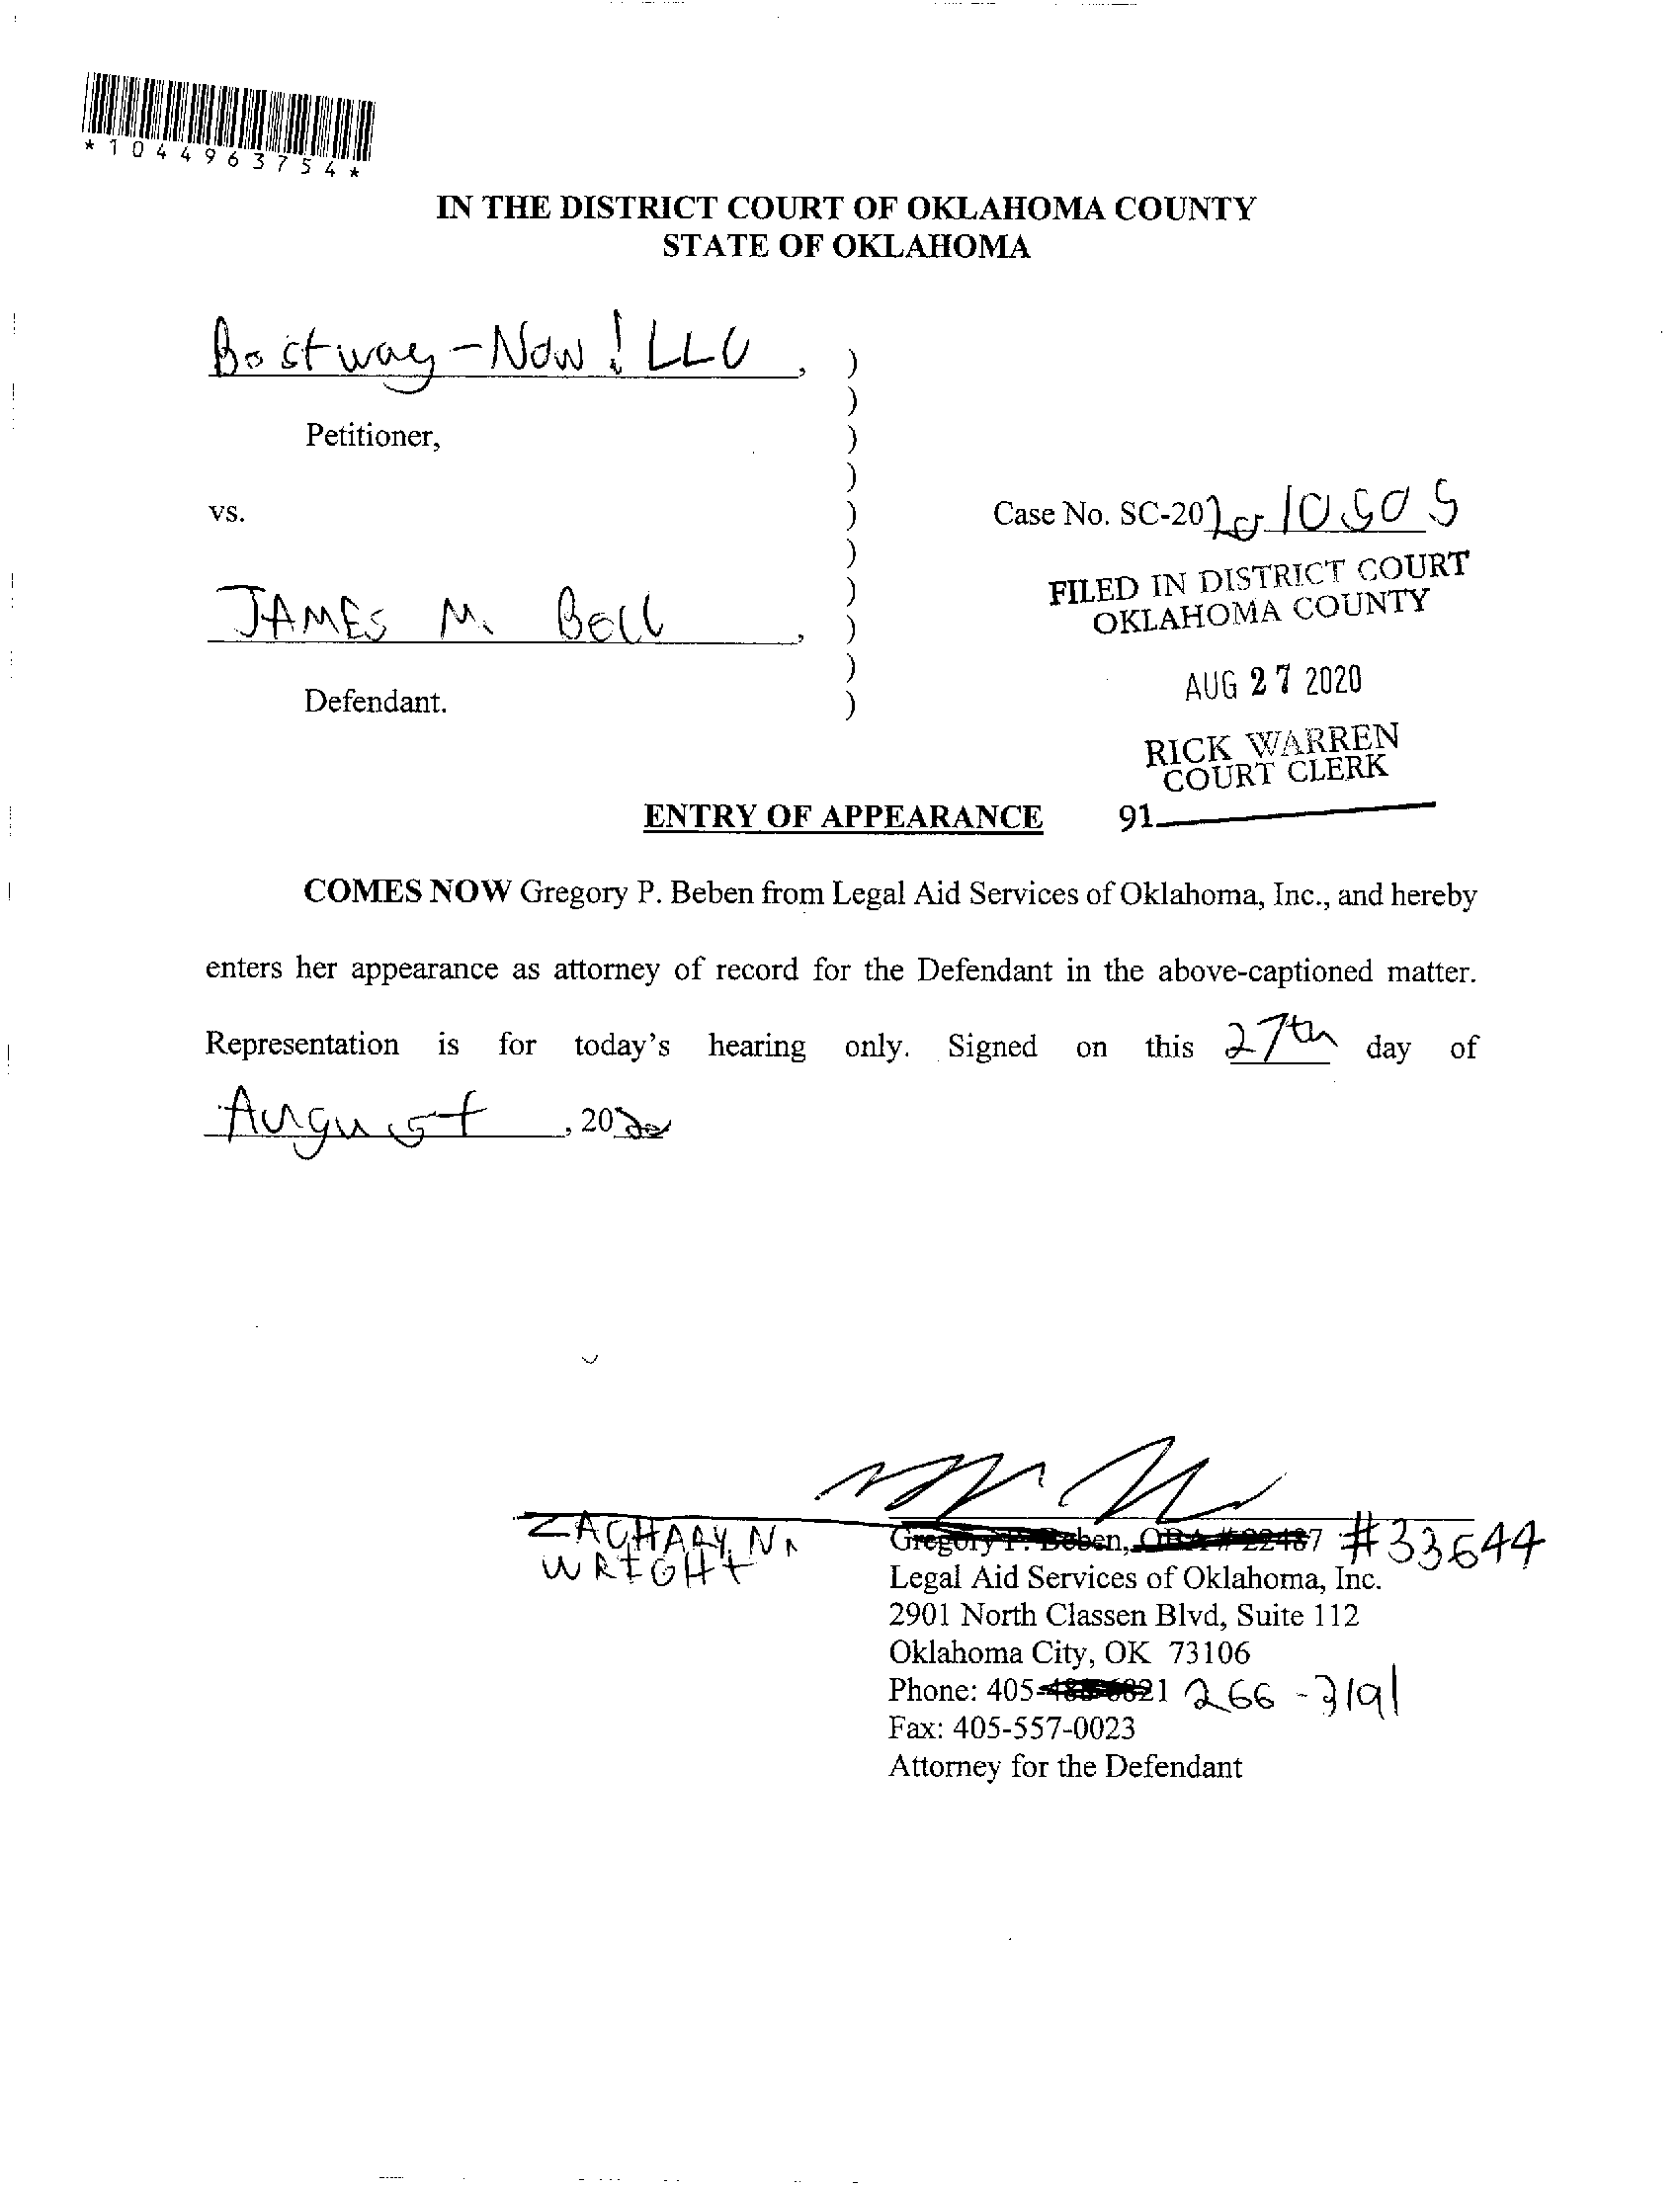 *1044963754*
IN THE DISTRICT COURT OF OKLAHOMA COUNTY
STATE OF OKLAHOMA
Bostway-Now! LLC,
Petitioner,
vs.
Case No. SC-2020-10505
FILED IN DISTRICT COURT
OKLAHOMA COUNTY
JAMES M. Bell,
AUG 27 2020
Defendant.
RICK WARREN
COURT CLERK
ENTRY OF APPEARANCE
91
COMES NOW Gregory P. Beben from Legal Aid Services of Oklahoma, Inc., and hereby
enters her appearance as attorney of record for the Defendant in the above-captioned matter.
Representation is for today's hearing only. Signed on this 27th day of
August, 2020
ZACHARY N.
WRIGHT
Gregory P. Beben, OBA # 22487 #33644
Legal Aid Services of Oklahoma, Inc.
2901 North Classen Blvd, Suite 112
Oklahoma City, OK 73106
Phone: 405- 266-3191
Fax: 405-557-0023
Attorney for the Defendant